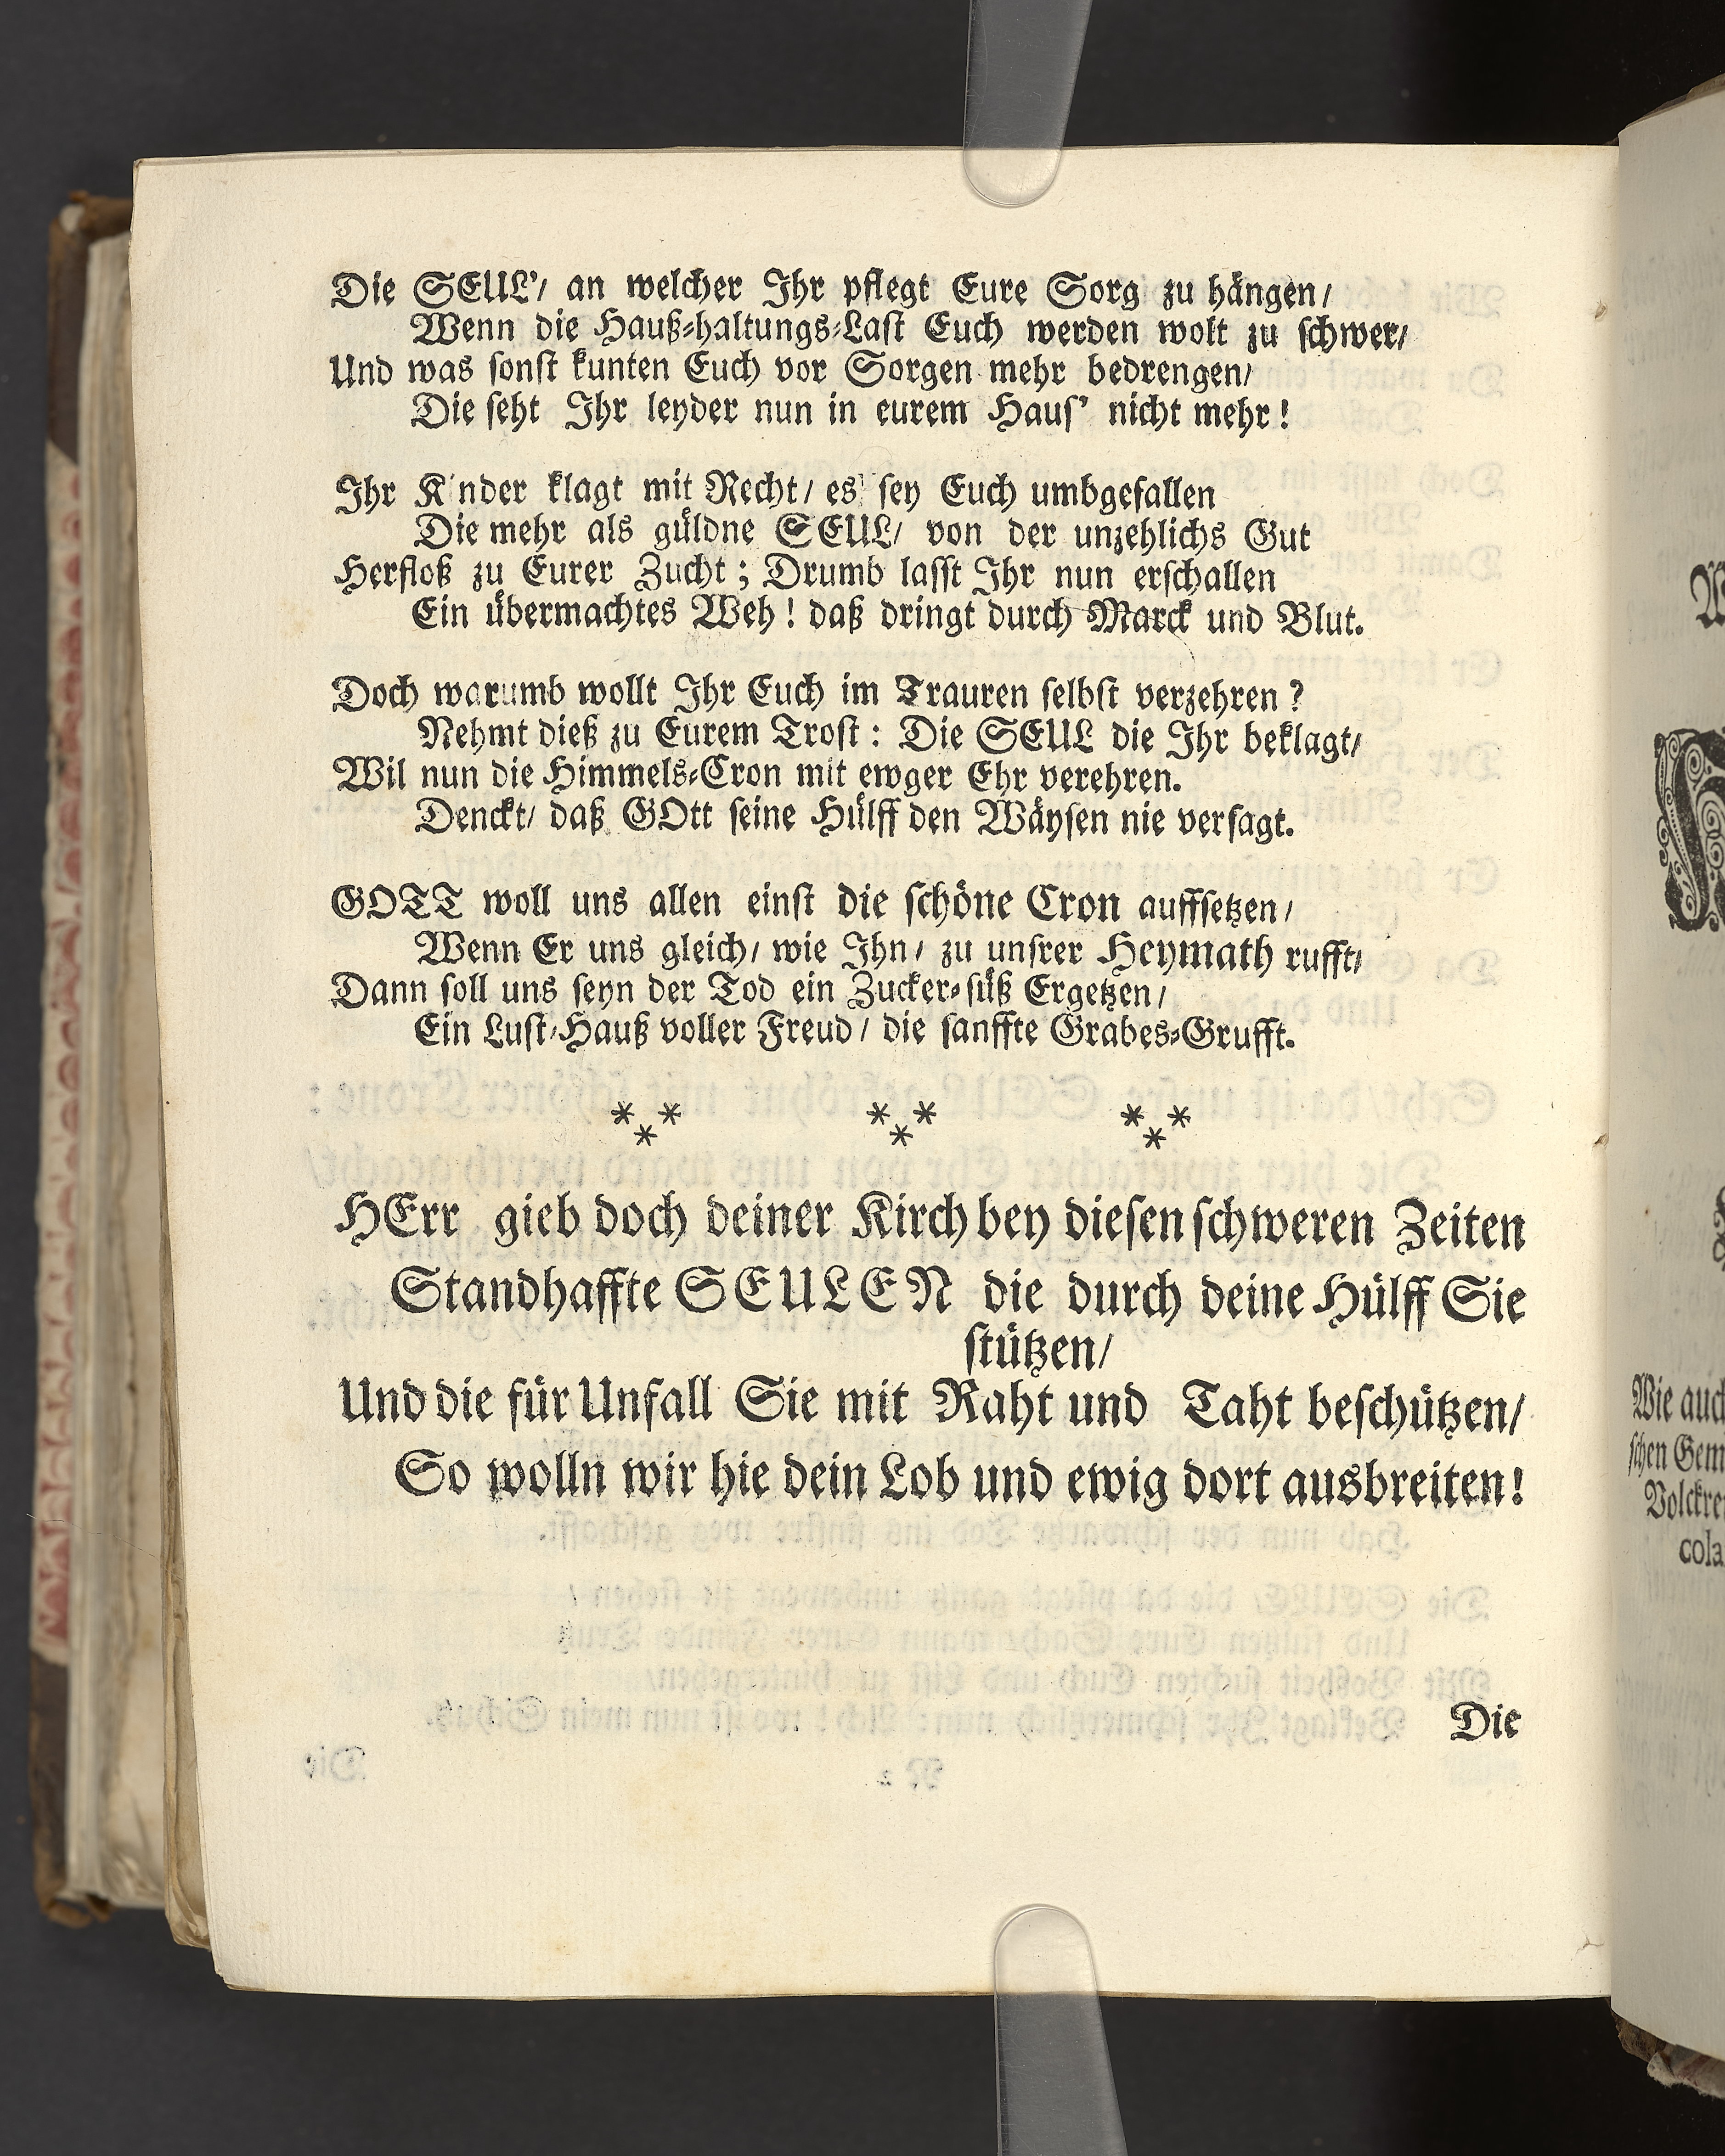 Die SEUL'/ an welcher Ihr pflegt Eure Sorg zu hängen/
Wenn die Hauß-haltungs-Last Euch werden wolt zu schwer/
Und was sonst kunten Euch vor Sorgen mehr bedrengen/
Die seht Ihr leyder nun in eurem Haus' nicht mehr!
Ihr K nder klagt mit Recht/ es sey Euch umbgefallen
Die mehr als güldne SEUL/ von der unzehlichs Gut
Herfloß zu Eurer Zucht; Drumb lasst Ihr nun erschallen
Ein übermachtes Weh! daß dringt durch Marck und Blut.
Doch warumb wollt Ihr Euch im Trauren selbst verzehren?
Nehmt dieß zu Eurem Trost: Die SEUL die Ihr beklagt/
Wil nun die Himmels-Cron mit ewger Ehr verehren.
Denckt/ daß GOtt seine Hülff den Wäysen nie versagt.
GOTT woll uns allen einst die schöne Cron auffsetzen/
Wenn Er uns gleich/ wie Ihn/ zu unsrer Heymath rufft/
Dann soll uns seyn der Tod ein Zucker-süß Ergetzen/
Ein Lust-Hauß voller Freud/ die sanffte Grabes-Grufft.
*** *** ***
HErr gieb doch deiner Kirch bey diesen schweren Zeiten
Standhaffte SEULEN die durch deine Hülff Sie
stützen/
Und die für Unfall Sie mit Raht und Taht beschützen/
So wolln wir hie dein Lob und ewig dort ausbreiten!
Die
Wie auch
schen Gem
Volckre
cola